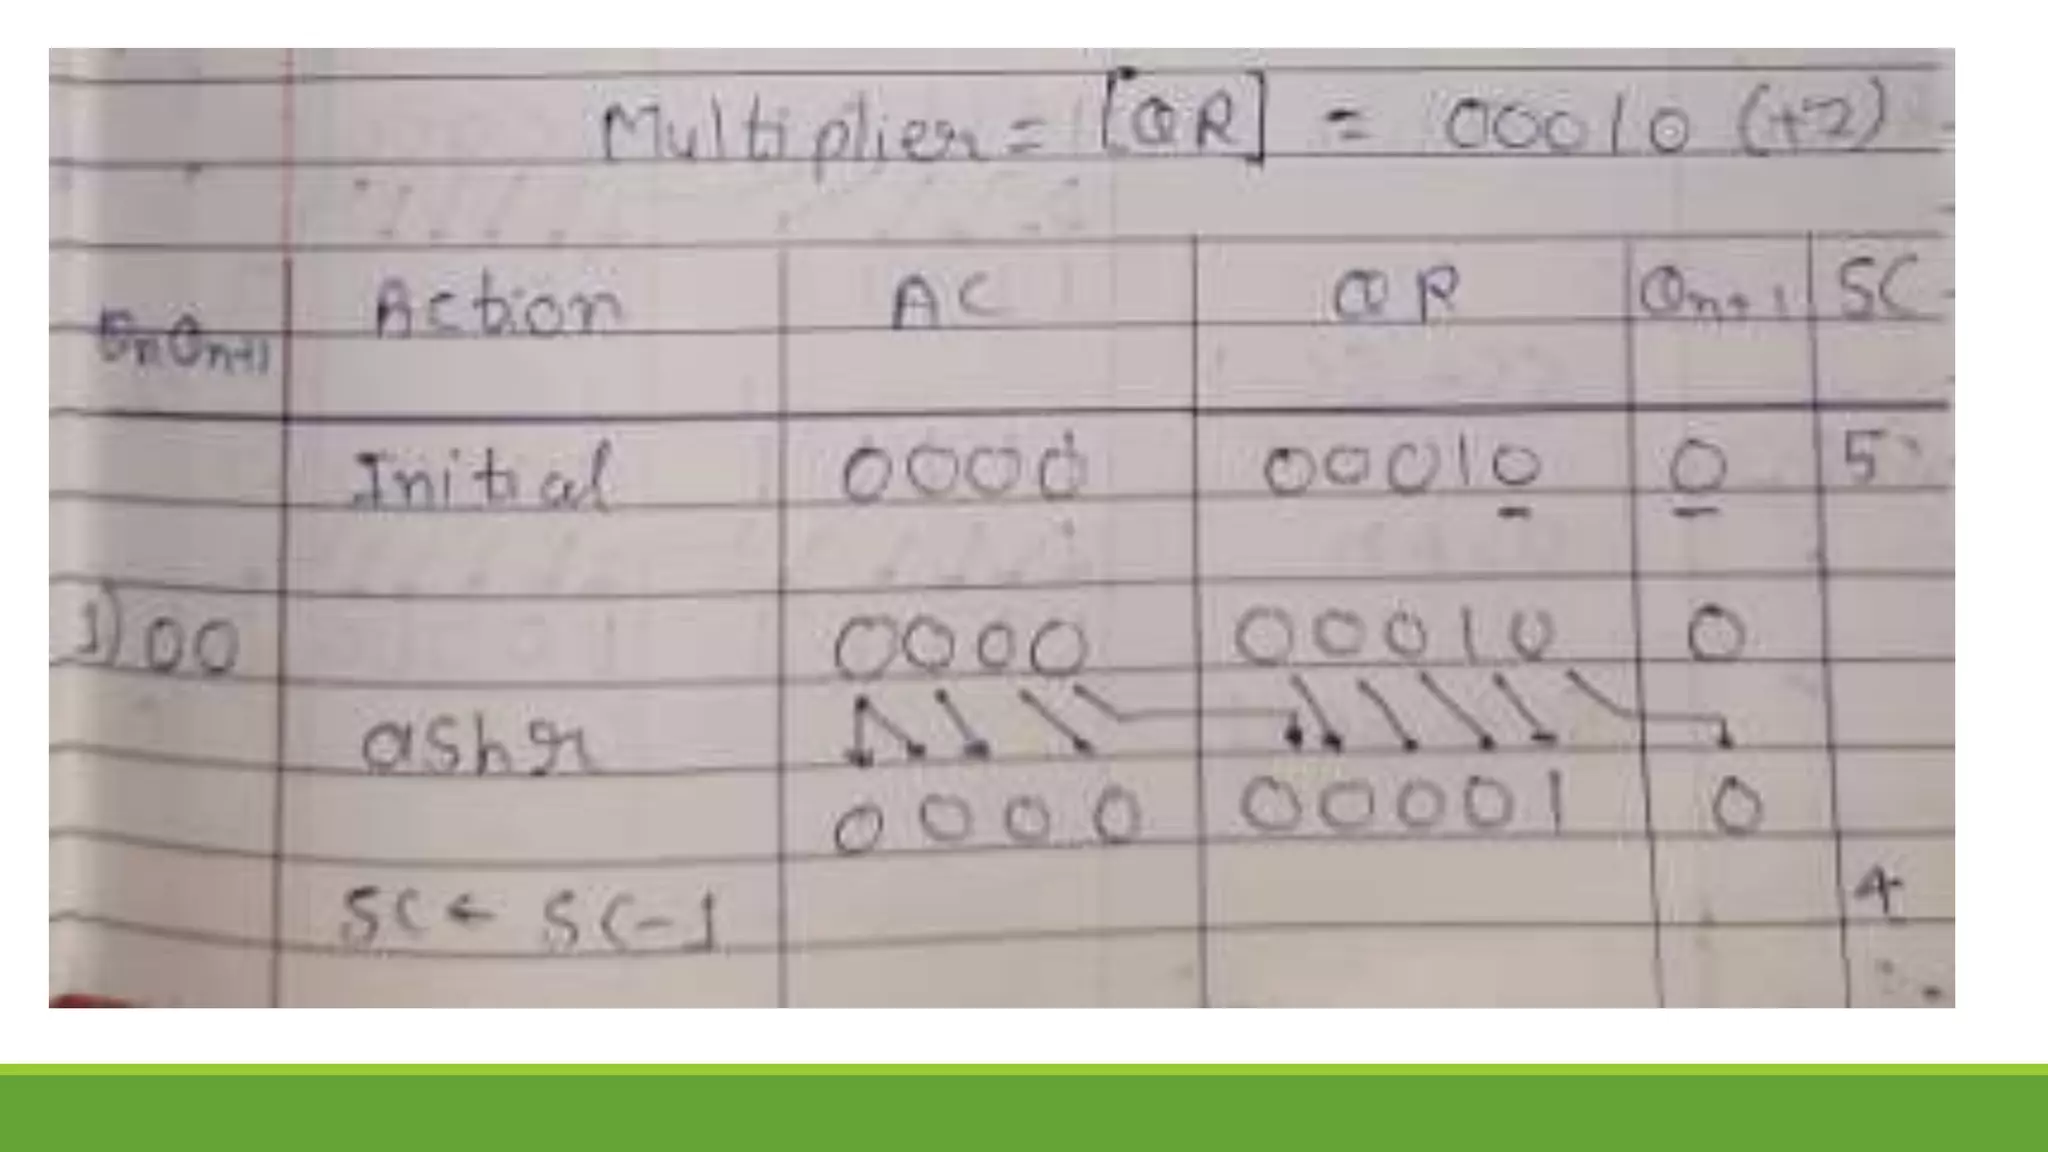 Multiplier = [QR] = 00010 (+2)
QnQn+1 Action AC QR Qn+1 SC
Initial 0000 00010 0 5
1) 00 0000 00010 0
ashr
0000 00001 0
SC ← SC-1 4